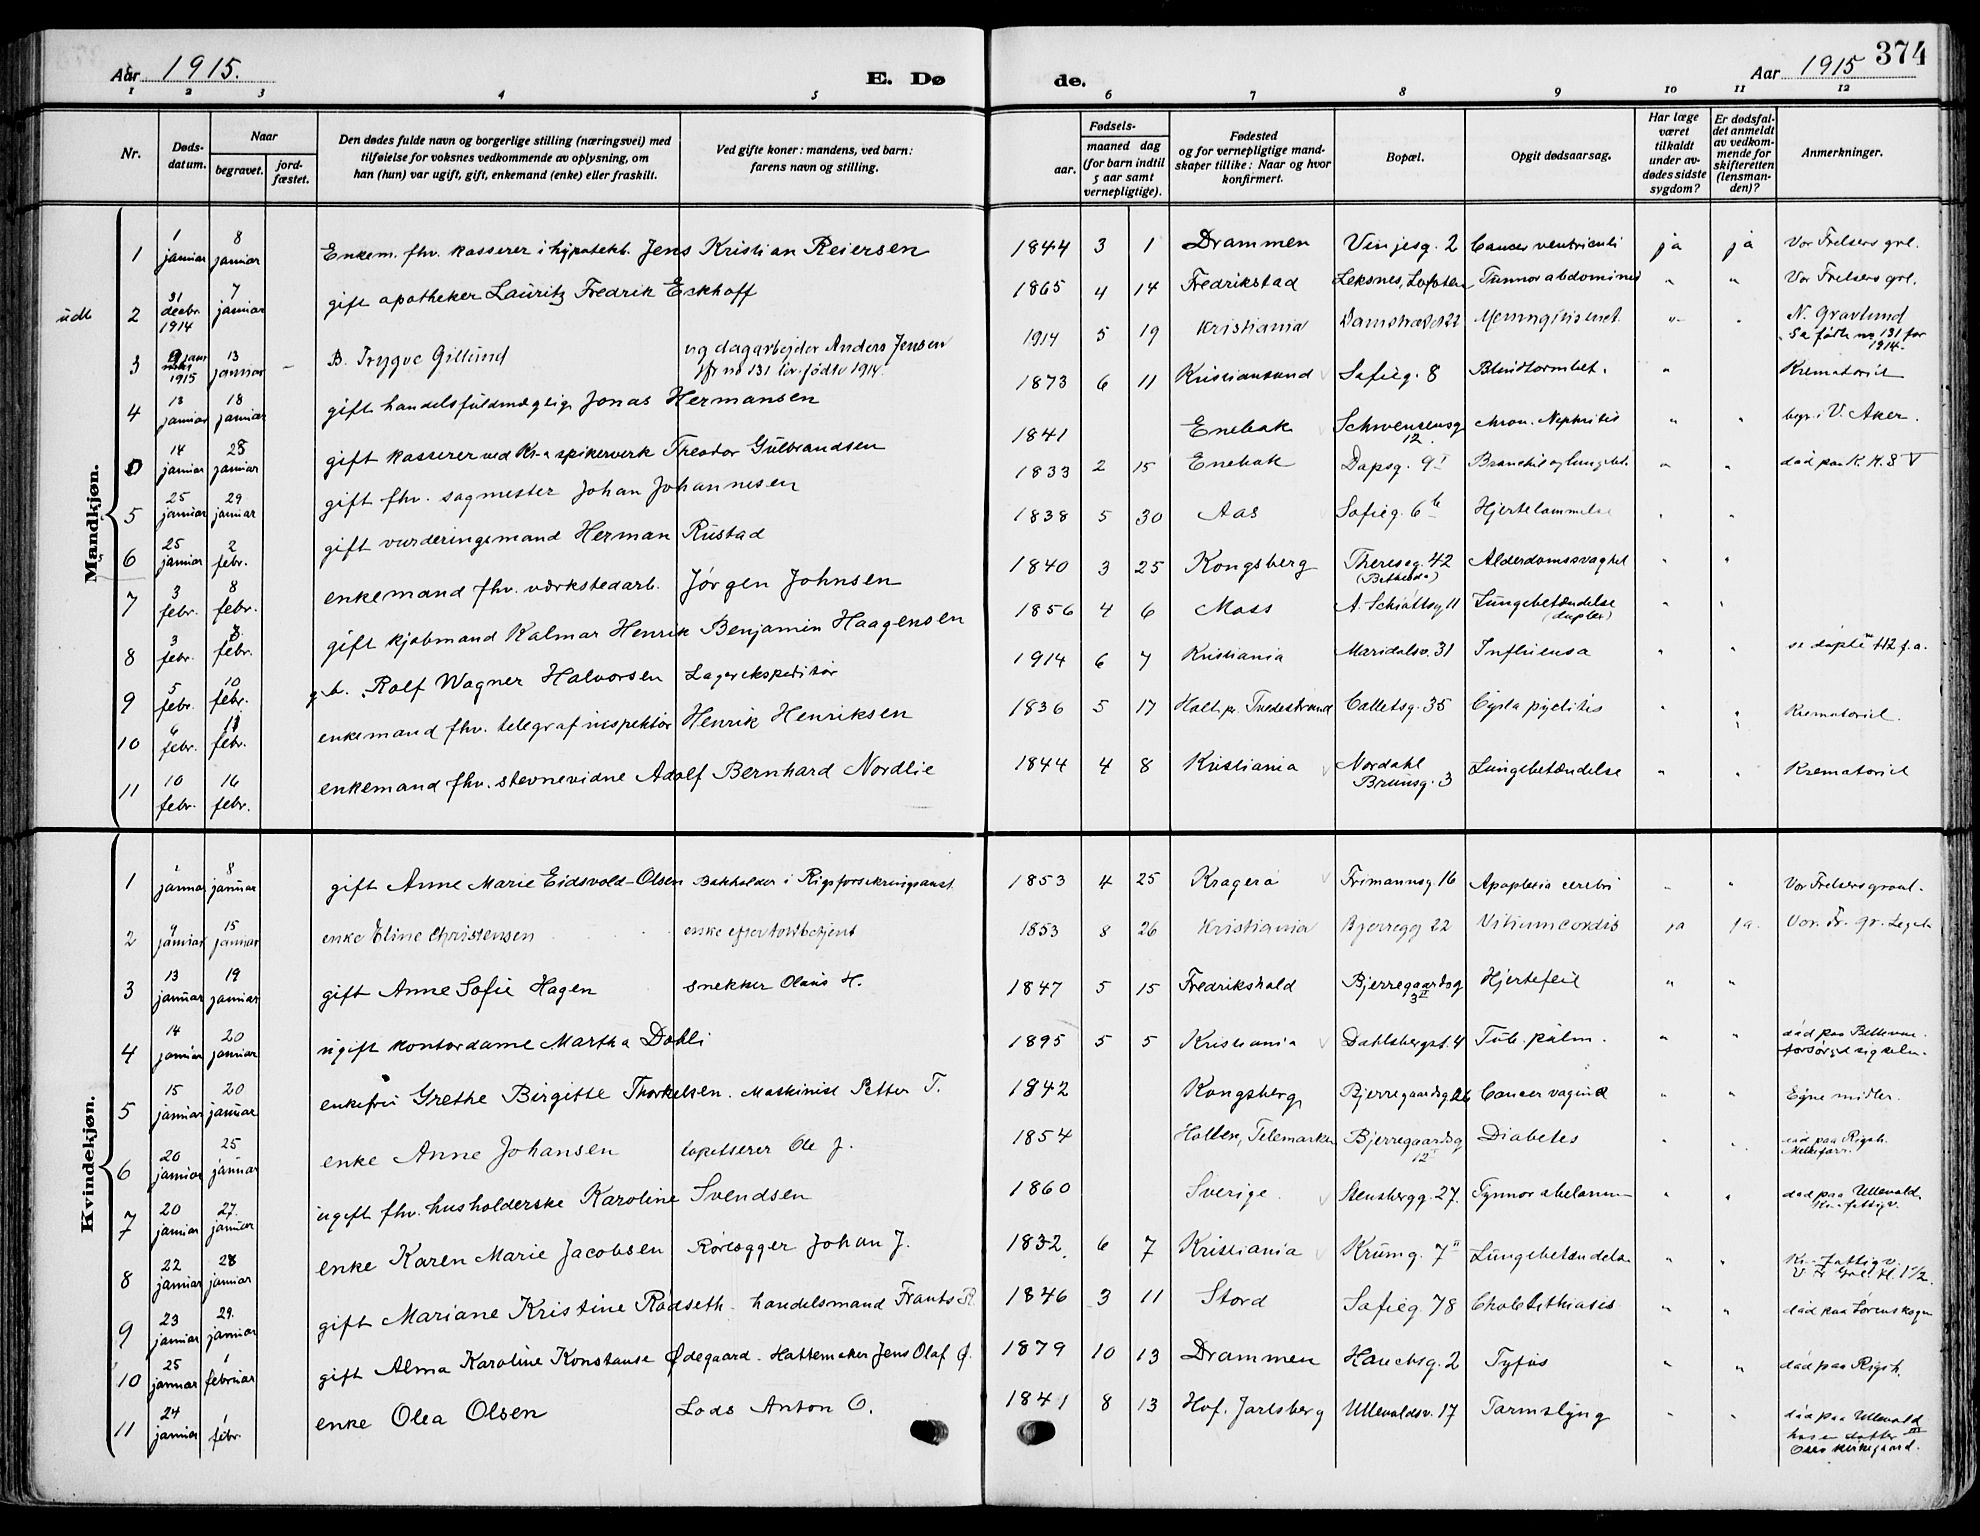 Aar 1915. E. Dø
de. Aar 1915 374
1 2 3 4 5 6 7 8 9 10 11 12
Nr.
Døds-
datum.
Naar
begravet.
jord-
fæstet.
Den dødes fulde navn og borgerlige stilling (næringsvei) med
tilføielse for voksnes vedkommende av oplysning, om
han (hun) var ugift, gift, enkemand (enke) eller fraskilt.
Ved gifte koner: mandens, ved barn:
farens navn og stilling.
Fødsels-
aar.
maaned dag
(for barn indtil
5 aar samt
vernepligtige).
Fødested
og for vernepligtige mand-
skaper tillike: Naar og hvor
konfirmert.
Bopæl.
Opgit dødsaarsag.
Har læge
været
tilkaldt
under av-
dødes sidste
sygdom?
Er dødsfal-
det anmeldt
av vedkom-
mende for
skifteretten
(lensman-
den)?
Anmerkninger.
Mandkjøn.
1 1 januar 8 januar Enkem. fhv. kasserer i hypotekb. Jens Kristian Reiersen 1844 3 1 Drammen Vinjesg. 2 Cancer ventriculi ja ja Vor Frelsers grl.
2 31 decbr 1914 7 januar gift apotheker Lauritz Fredrik Eckhoff 1865 4 14 Fredrikstad Leksnes, Lofoten Tumor abdominis " " Vor Frelsers grl.
3 1915 13 januar B. Trygve Gillund ug dagarbejder Anders Jensen 1914 5 19 Kristiania N. Gravlund
no 131 lev. fødte 1914. Se fødte no 131 for 1914.
4 13 januar 18 januar gift handelsfuldmægtig Jonas Hermansen 1873 6 11 Kristiansund Sofieg. 8 Blindtarmbet. " Krematoriet
14 januar 25 januar gift kasserer ved Kr-a spikerverk Theodor Gulbrandsen 1841 Enebak Schwensensg 12. chron. Nephritis " " begr. i V. Aker.
5 25 januar 29 januar gift fhv. sagmester Johan Johannesen 1833 2 15 Enebak Dapsg. 9 I " " død paa K. K. S V
6 25 januar 2 febr. gift vurderingsmand Herman Rustad 1838 5 30 Aas Sofieg. 6 b Hjertelammelse " "
7 3 febr. 8 febr. enkemand fhv. værkstedarb. Jørgen Johnsen 1840 3 25 Kongsberg Thereseg. 42 (Bethesda) Alderdomssvaghet " "
8 3 febr. febr. gift kjøbmand Kalmar Henrik Benjamin Haagensen 1856 4 6 Moss A. Schiøttsg 11 Lungebetændelse (duplex) " "
9 5 febr. 10 febr. g.b. Rolf Wagner Halvorsen Lagerekspeditør 1914 6 7 Kristiania Maridalsv. 31 Influensa " " se døpte 112 f.a.
10 6 febr. 11 febr. enkemand fhv. telegrafinspektør Henrik Henriksen 1836 5 17 Holt pr. Tvedestrand Colletsg. 35 Cysto pyelitis " " Krematoriet.
11 10 febr. 16 febr. enkemand fhv. stevnevidne Adolf Bernhard Nordlie 1844 4 8 Kristiania Nordahl Brunsg. 3 Lungebetændelse " " Krematoriet
Kvindekjøn.
1 1 januar 8 januar gift Anne Marie Eidsvold-Olsen Bokholder i Rigsforsikringsanst. 1853 4 25 Kragerø Frimannsg 16 Apoplexia cerebri " " Vor Frelsers gravl.
2 9 januar 15 januar enke Eline Christensen enke efter toldbetjent 1853 8 26 Kristiania Bjerregg 22 Vitium cordis ja ja. Vor. Fr. gr.
3 13 januar 19 januar gift Anne Sofie Hagen snekker Olaus H. 1847 5 15 Fredrikshald Bjerregaardsg 3 II Hjertefeil " "
4 14 januar 20 januar ugift kontordame Martha Dahli 1895 5 5 Kristiania Dahlsbergst. 4 Tub. pulm. " " død paa Bellevue.
forsørged sig selv.
5 15 januar 20 januar enkefru Grethe Birgitte Thorkelsen. Maskinist Petter T. 1842 Kongsberg Bjerregaardsg 26 Cancer vaginæ " " Egne midler.
6 20 januar 25 januar enke Anne Johansen tapetserer Ole J. 1854 Holten, Telemarken Bjerregaardsg 12 Diabetes " " død paa Rigsh.
7 20 januar 27. januar ugift fhv. husholderske Karoline Svendsen 1860 Sverige. Stensbergg. 27. " " død paa Ullevaal.
Kr. fattigv.
8 22 januar 28 januar enke Karen Marie Jacobsen Rørlægger Johan J. 1832. 6 7 Kristiania Krumg. 7 II Lungebetændelse " " Kr. fattigv.
9 23 januar 29. januar gift Mariane Kristine Rødseth - handelsmand Frants R. 1846 3 11 Stord Sofieg. 78 Cholelithiasis " " død paa Lørenskogen
10 25 januar 1 februar gift Alma Karoline Konstanse Ødegaard. Hattemaker Jens Olaf Ø. 1879 10 13 Drammen Hauchsg. 2 Tyfus " " død paa Rigsh.
11 24 januar 1 febr. enke Olea Olsen Lods Anton O. 1841 8 13 Hof. Jarlsberg Ullevaldsv. 17 Tarmslyng " " død paa Ullevold
hos en datter
Oslo kirkegaard.